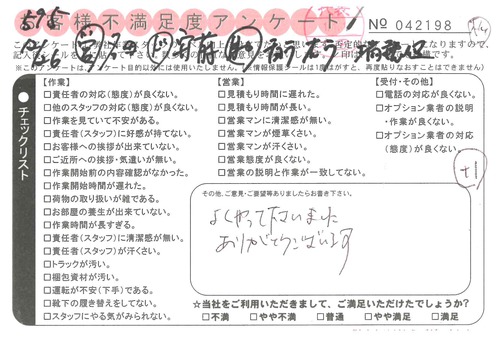 お客様不満足度アンケート
No 042198
【作業】
□責任者の対応(態度)が良くない。
□他のスタッフの対応(態度)が良くない。
□作業を見ていて不安がある。
□責任者(スタッフ)に好感が持てない。
□お客様への挨拶が出来ていない。
□ご近所への挨拶・気遣いが無い。
□作業開始前の内容確認がなかった。
□作業開始時間が遅れた。
□荷物の取り扱いが雑である。
□お部屋の養生が出来ていない。
□作業時間が長すぎる。
□責任者(スタッフ)に清潔感が無い。
□責任者(スタッフ)が汗くさい。
□トラックが汚い。
□梱包資材が汚い。
□運転が不安(下手)である。
□靴下の履き替えをしてない。
□スタッフにやる気がみられない。
【営業】
□見積もり時間に遅れた。
□見積もり時間が長い。
□営業マンに清潔感が無い。
□営業マンが煙草くさい。
□営業マンが汗くさい。
□営業態度が良くない。
□営業の説明と作業が一致してない。
【受付・その他】
□電話の対応が良くない。
□オプション業者の説明
・作業が良くない。
□オプション業者の対応
(態度)が良くない。
チェックリスト
+1
その他、ご意見・ご要望等ありましたらお書き下さい。
よくやって下さいました
ありがとうございます
☆当社をご利用いただきまして、ご満足いただけたでしょうか?
□不満 □やや不満 □普通 □やや満足 □満足